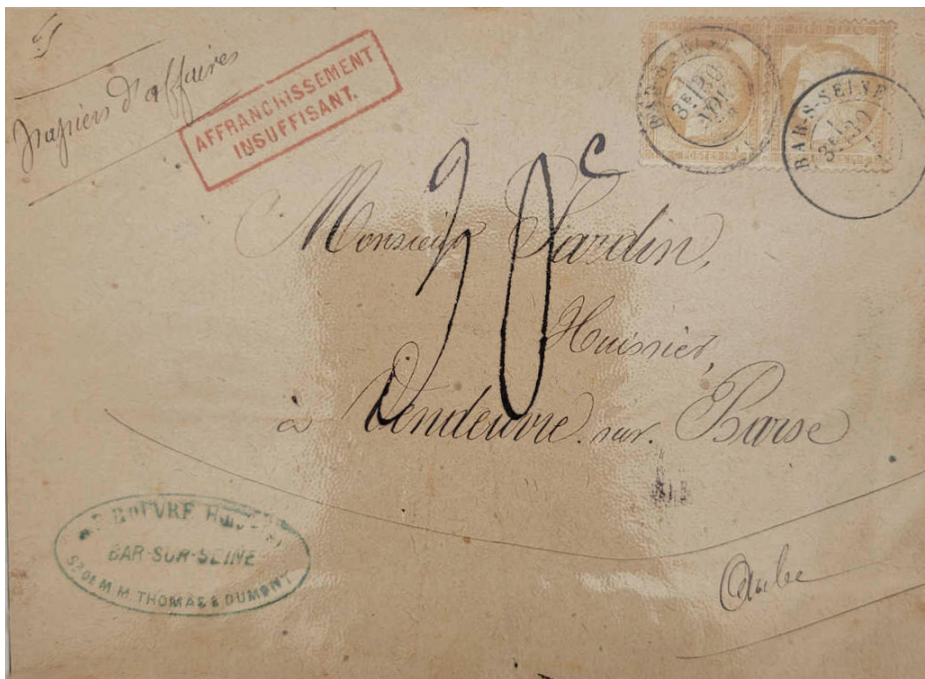 Papiers d'affaires
AFFRANCHISSEMENT
INSUFFISANT.
BAR-S-SEINE
3E
30
BAR-S-SEINE
3E
30
30c
Monsieur Jardin,
Huissier,
à Vendeuvre. sur. Barse
Aube
BAR-SUR-SEINE
SR DE M.M. THOMAS & DUMONT